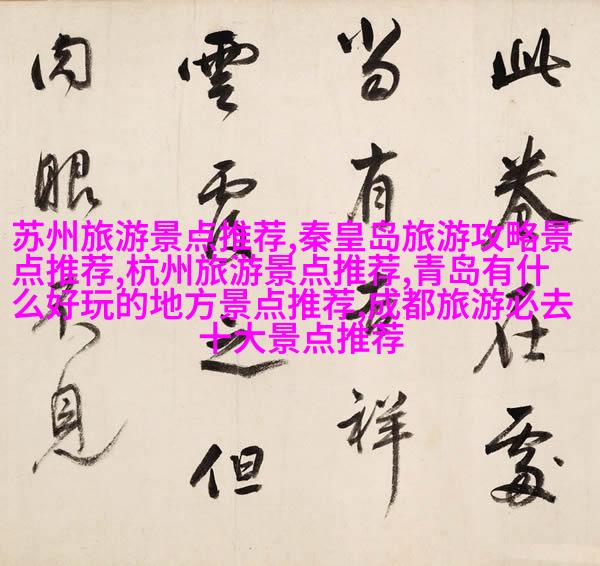 此卷在處
當有吉祥
雲覆之但
肉眼不見
苏州旅游景点推荐,秦皇岛旅游攻略景
点推荐,杭州旅游景点推荐,青岛有什
么好玩的地方景点推荐,成都旅游必去
十大景点推荐